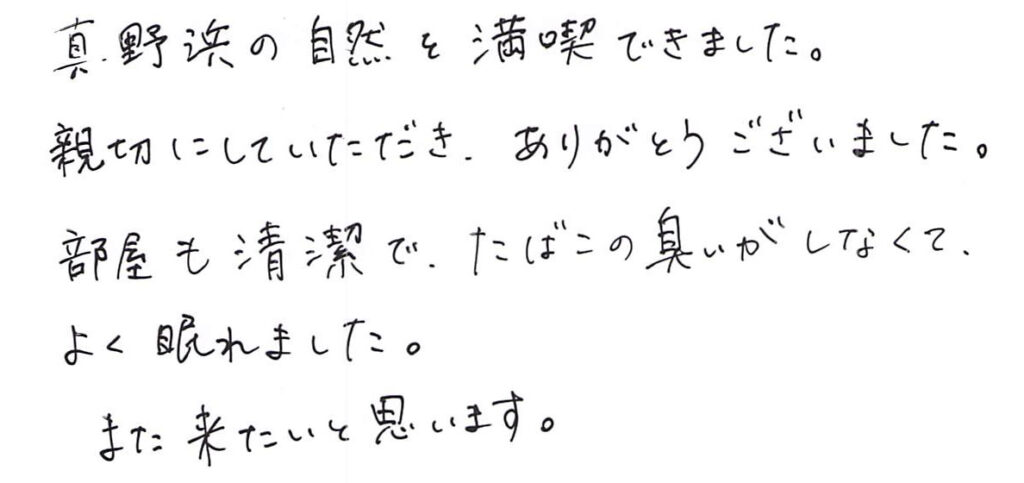 真野浜の自然を満喫できました。
親切にしていただき、ありがとうございました。
部屋も清潔で、たばこの臭いがしなくて、
よく眠れました。
また来たいと思います。